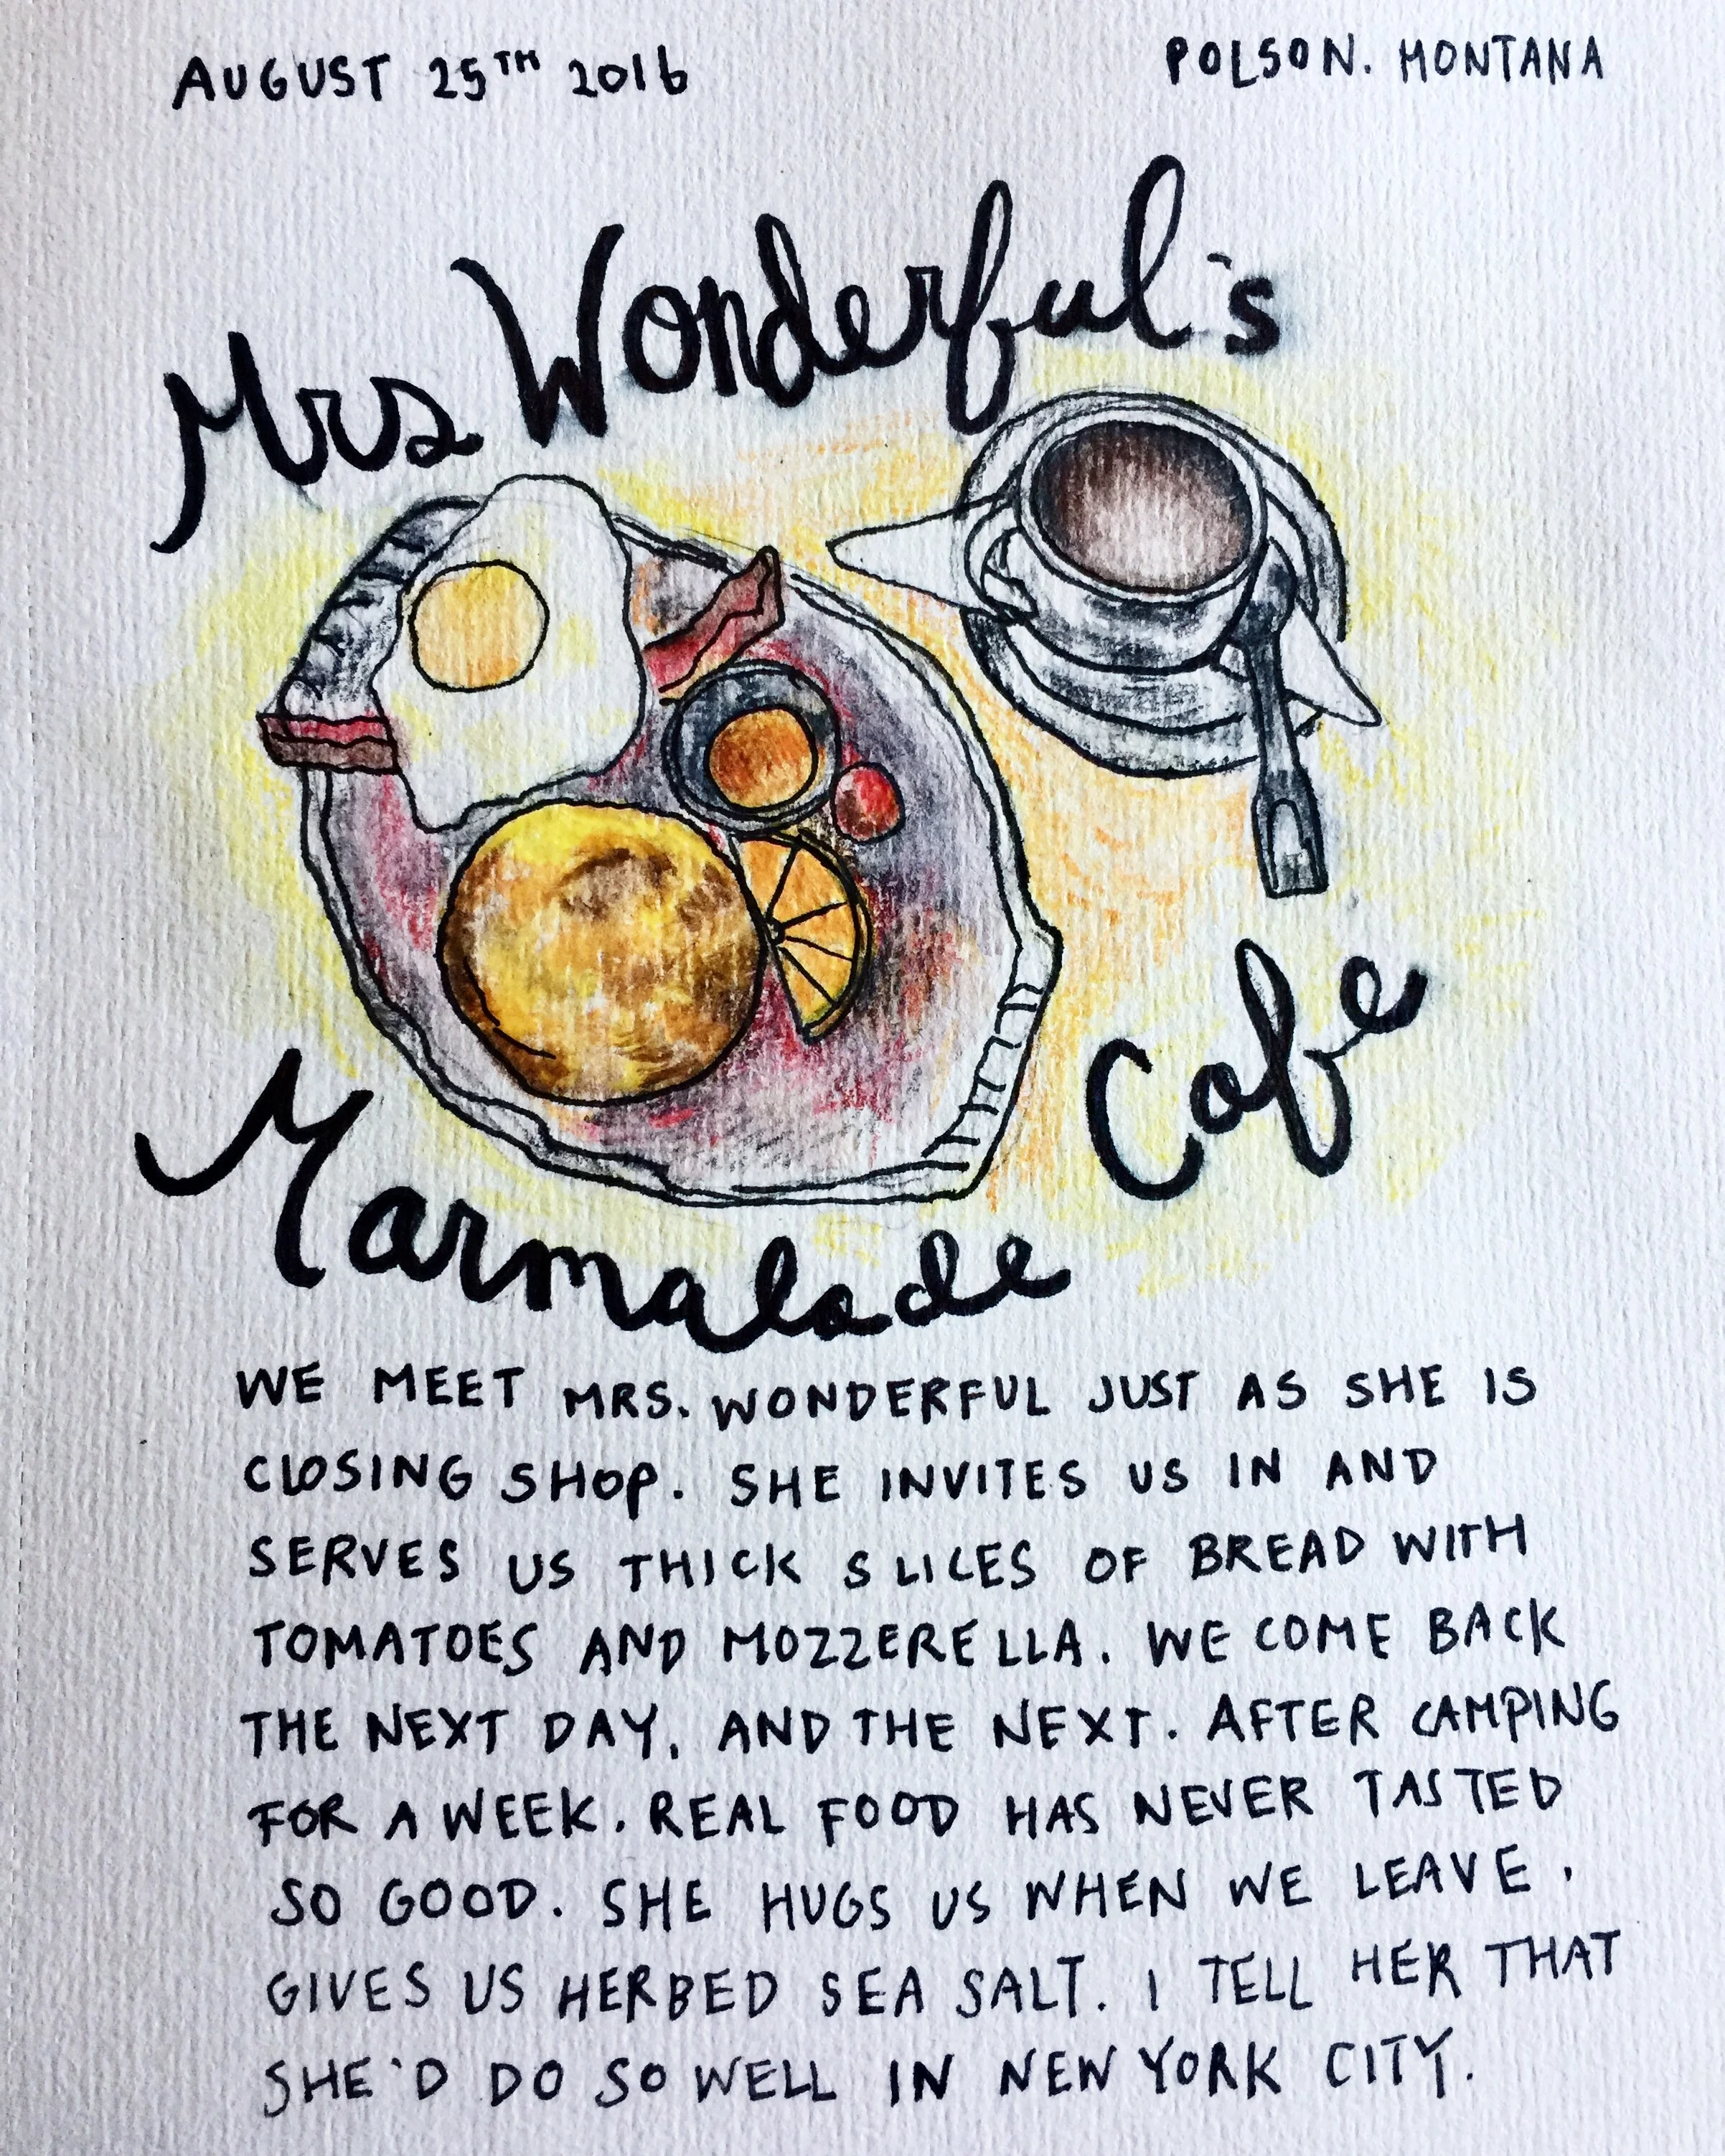 AUGUST 25TH 2016
POLSON. MONTANA
Mrs Wonderful's
Marmalade Cafe
WE MEET MRS. WONDERFUL JUST AS SHE IS
CLOSING SHOP. SHE INVITES US IN AND
SERVES US THICK SLICES OF BREAD WITH
TOMATOES AND MOZZERELLA. WE COME BACK
THE NEXT DAY. AND THE NEXT. AFTER CAMPING
FOR A WEEK. REAL FOOD HAS NEVER TASTED
SO GOOD. SHE HUGS US WHEN WE LEAVE.
GIVES US HERBED SEA SALT. I TELL HER THAT
SHE'D DO SO WELL IN NEW YORK CITY.